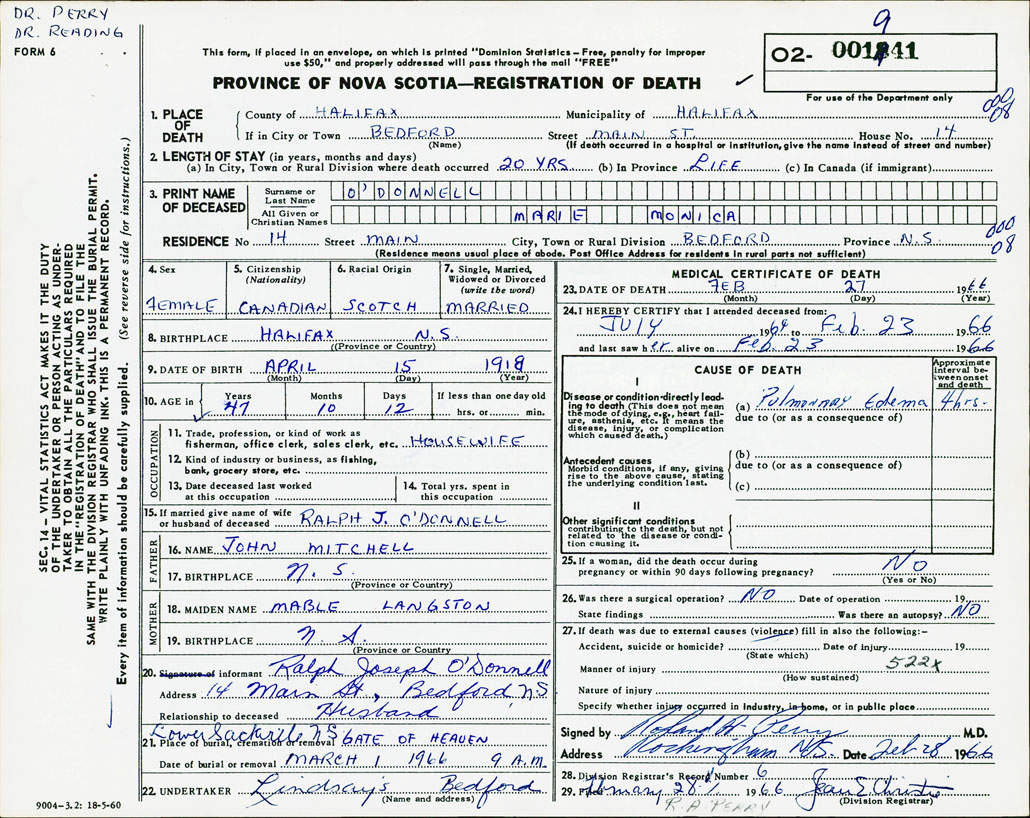 DR. PERRY
DR. READING
FORM 6
This form, if placed in an envelope, on which is printed "Dominion Statistics – Free, penalty for improper
use $50," and properly addressed will pass through the mail "FREE"
PROVINCE OF NOVA SCOTIA—REGISTRATION OF DEATH
9
02- 001841
For use of the Department only
000
08
1. PLACE OF DEATH
County of HALIFAX Municipality of HALIFAX
If in City or Town BEDFORD Street MAIN ST. House No. 14
(Name) (If death occurred in a hospital or institution, give the name instead of street and number)
2. LENGTH OF STAY (in years, months and days)
(a) In City, Town or Rural Division where death occurred 20 YRS. (b) In Province LIFE (c) In Canada (if immigrant)
3. PRINT NAME OF DECEASED
Surname or Last Name O'DONNELL
All Given or Christian Names MARIE MONICA
000
08
RESIDENCE No 14 Street MAIN City, Town or Rural Division BEDFORD Province N.S.
(Residence means usual place of abode. Post Office Address for residents in rural parts not sufficient)
4. Sex
FEMALE
5. Citizenship (Nationality)
CANADIAN
6. Racial Origin
SCOTCH
7. Single, Married, Widowed or Divorced (write the word)
MARRIED
8. BIRTHPLACE HALIFAX N.S.
(Province or Country)
9. DATE OF BIRTH APRIL 15 1918
(Month) (Day) (Year)
10. AGE in Years Months Days If less than one day old
47 10 12 hrs. or min.
OCCUPATION
11. Trade, profession, or kind of work as
fisherman, office clerk, sales clerk, etc. HOUSEWIFE
12. Kind of industry or business, as fishing,
bank, grocery store, etc.
13. Date deceased last worked
at this occupation
14. Total yrs. spent in
this occupation
15. If married give name of wife
or husband of deceased RALPH J. O'DONNELL
FATHER
16. NAME JOHN MITCHELL
17. BIRTHPLACE N. S.
(Province or Country)
MOTHER
18. MAIDEN NAME MABLE LANGSTON
19. BIRTHPLACE N. S.
(Province or Country)
20. Signature of informant Ralph Joseph O'Donnell
Address 14 Main St, Bedford, N.S
Relationship to deceased Husband
Lower Sackville N S
21. Place of burial, cremation or removal GATE OF HEAVEN
Date of burial or removal MARCH 1 1966 9 A.M.
22. UNDERTAKER Lindsay's Bedford
(Name and address)
MEDICAL CERTIFICATE OF DEATH
23. DATE OF DEATH FEB 27 1966
(Month) (Day) (Year)
24. I HEREBY CERTIFY that I attended deceased from:
JULY 1964 to Feb. 23 1966
and last saw her alive on Feb. 23 1966
CAUSE OF DEATH
Approximate interval between onset and death
I
Disease or condition directly leading to death (This does not mean the mode of dying, e.g., heart failure, asthenia, etc. It means the disease, injury, or complication which caused death.)
(a) Pulmonary Edema 4 hrs.
due to (or as a consequence of)
Antecedent causes
Morbid conditions, if any, giving rise to the above cause, stating the underlying condition last.
(b)
due to (or as a consequence of)
(c)
II
Other significant conditions
contributing to the death, but not related to the disease or condition causing it.
25. If a woman, did the death occur during
pregnancy or within 90 days following pregnancy? NO
(Yes or No)
26. Was there a surgical operation? NO Date of operation 19
State findings Was there an autopsy? NO
27. If death was due to external causes (violence) fill in also the following:–
Accident, suicide or homicide? Date of injury 19
(State which)
522x
Manner of injury
(How sustained)
Nature of injury
Specify whether injury occurred in Industry, in home, or in public place
Signed by Roland A. Perry M.D.
Address Rockingham N.S. Date Feb 28 1966
28. Division Registrar's Record Number 6
29. Filed 28 1966 Jean E. Christie
(Division Registrar)
R.A. PERRY
SEC. 14 – VITAL STATISTICS ACT MAKES IT THE DUTY
OF THE UNDERTAKER OR PERSON ACTING AS UNDER-
TAKER TO OBTAIN ALL THE PARTICULARS REQUIRED
IN THE "REGISTRATION OF DEATH" AND TO FILE THE
SAME WITH THE DIVISION REGISTRAR WHO SHALL ISSUE THE BURIAL PERMIT.
WRITE PLAINLY WITH UNFADING INK. THIS IS A PERMANENT RECORD.
Every item of information should be carefully supplied. (See reverse side for instructions.)
9004–3.2: 18-5-60